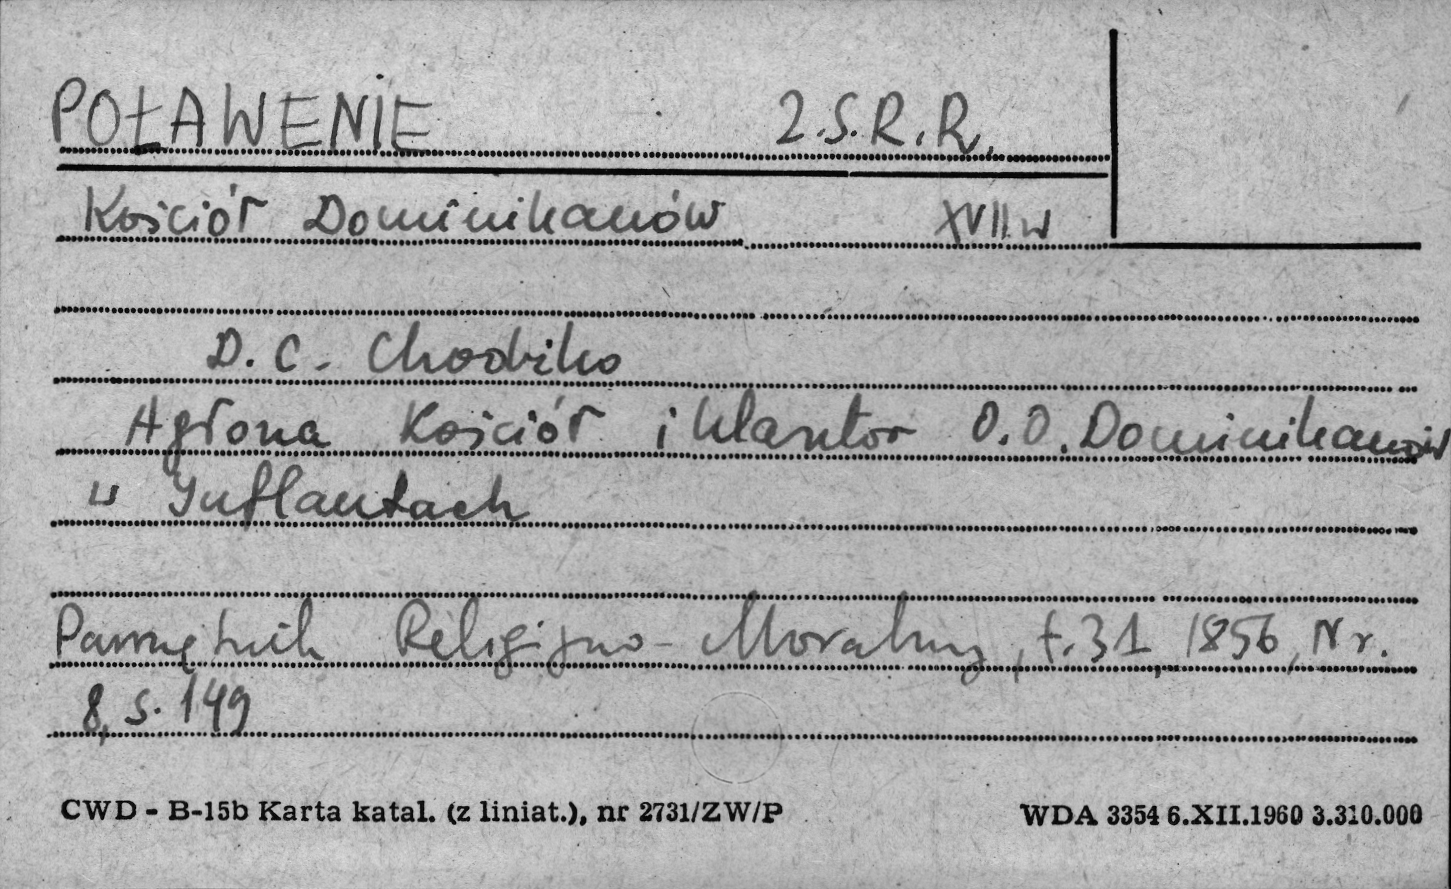 POŁAWENIE 2.S.R.R.
Kościół Dominikanów XVII w
D. C. Chodźko
Agłona Kościół i klasztor O.O. Dominikanów
w Inflantach
Pamiętnik Religijno-Moralny, t. 31, 1856, Nr.
8, s. 149
CWD - B-15b Karta katal. (z liniat.), nr 2731/ZW/P WDA 3354 6.XII.1960 3.310.000